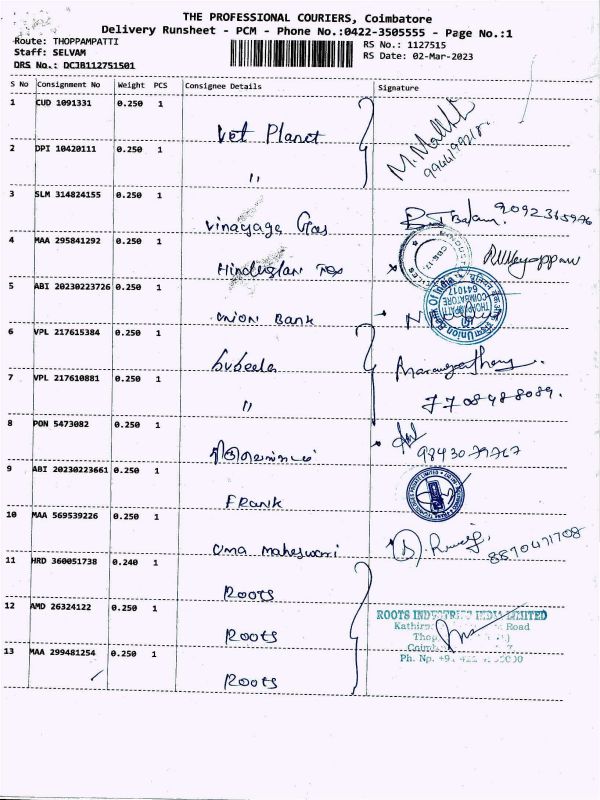 THE PROFESSIONAL COURIERS, Coimbatore
Delivery Runsheet - PCM - Phone No.:0422-3505555 - Page No.:1
Route: THOPPAMPATTI
Staff: SELVAM
DRS No.: DCJB1127515O1
RS No.: 1127515
RS Date: 02-Mar-2023
S No Consignment No Weight PCS Consignee Details Signature
1 CUD 1091331 0.250 1 Vet Planet
9944199218
2 DPI 10420111 0.250 1 "
3 SLM 314824155 0.250 1 Vinayaga Gas 9092365976
4 MAA 295841292 0.250 1 Hindustan
5 ABI 20230223726 0.250 1 Union Bank
Union Bank Of India
COIMBATORE
641017
6 VPL 217615384 0.250 1
7 VPL 217610881 0.250 1 "
7708488089.
8 PON 5473082 0.250 1
9843079767
9 ABI 20230223661 0.250 1 FRANK
10 MAA 569539226 0.250 1 Uma maheswari
8870471708
11 HRD 360051738 0.240 1 Roots
12 AMD 26324122 0.250 1 Roots
ROOTS INDUSTRIES INDIA LIMITED
Road
13 MAA 299481254 0.250 1 Roots